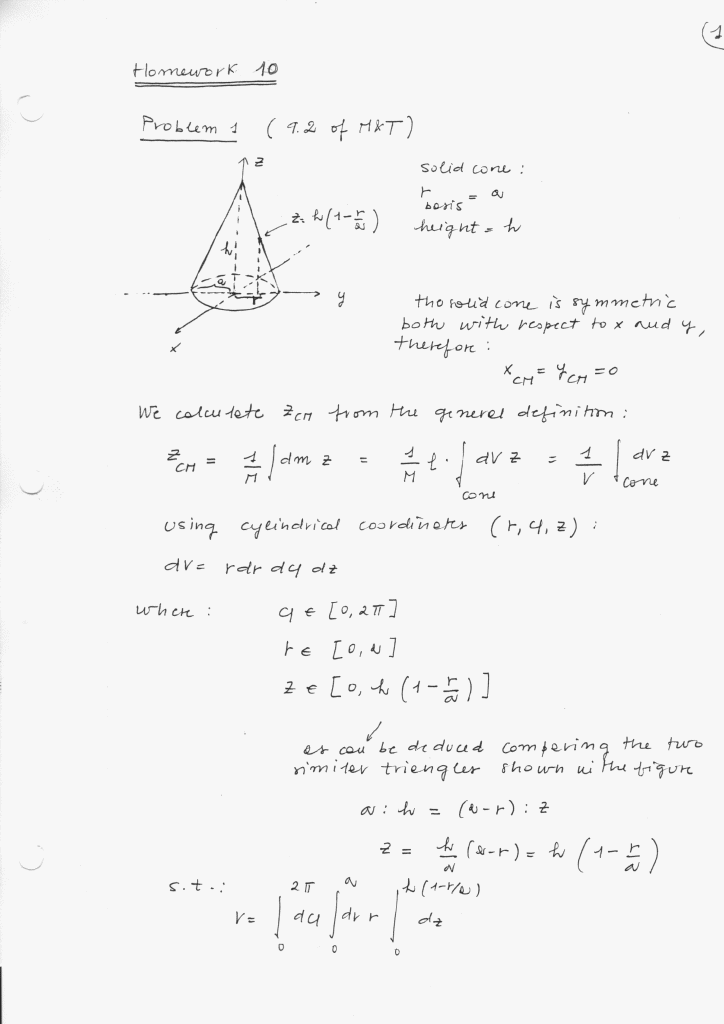 (1
Homework 10
Problem 1 ( 9.2 of M&T)
z
solid cone :
r basis = a
z= h(1-r/a)
height = h
h
a
r
y
x
the solid cone is symmetric
both with respect to x and y,
therefore :
x_CM = y_CM = 0
We calculate z_CM from the general definition :
z_CM = 1/M ∫ dm z = 1/M ρ · ∫_cone dV z = 1/V ∫_cone dV z
using cylindrical coordinates (r, φ, z) :
dV = r dr dφ dz
where : φ ∈ [0, 2π]
r ∈ [0, a]
z ∈ [0, h (1 - r/a)]
as can be deduced comparing the two
similar triangles shown in the figure
a : h = (a-r) : z
z = h/a (a-r) = h (1 - r/a)
s.t.:
V = ∫_0^2π dφ ∫_0^a dr r ∫_0^h(1-r/a) dz